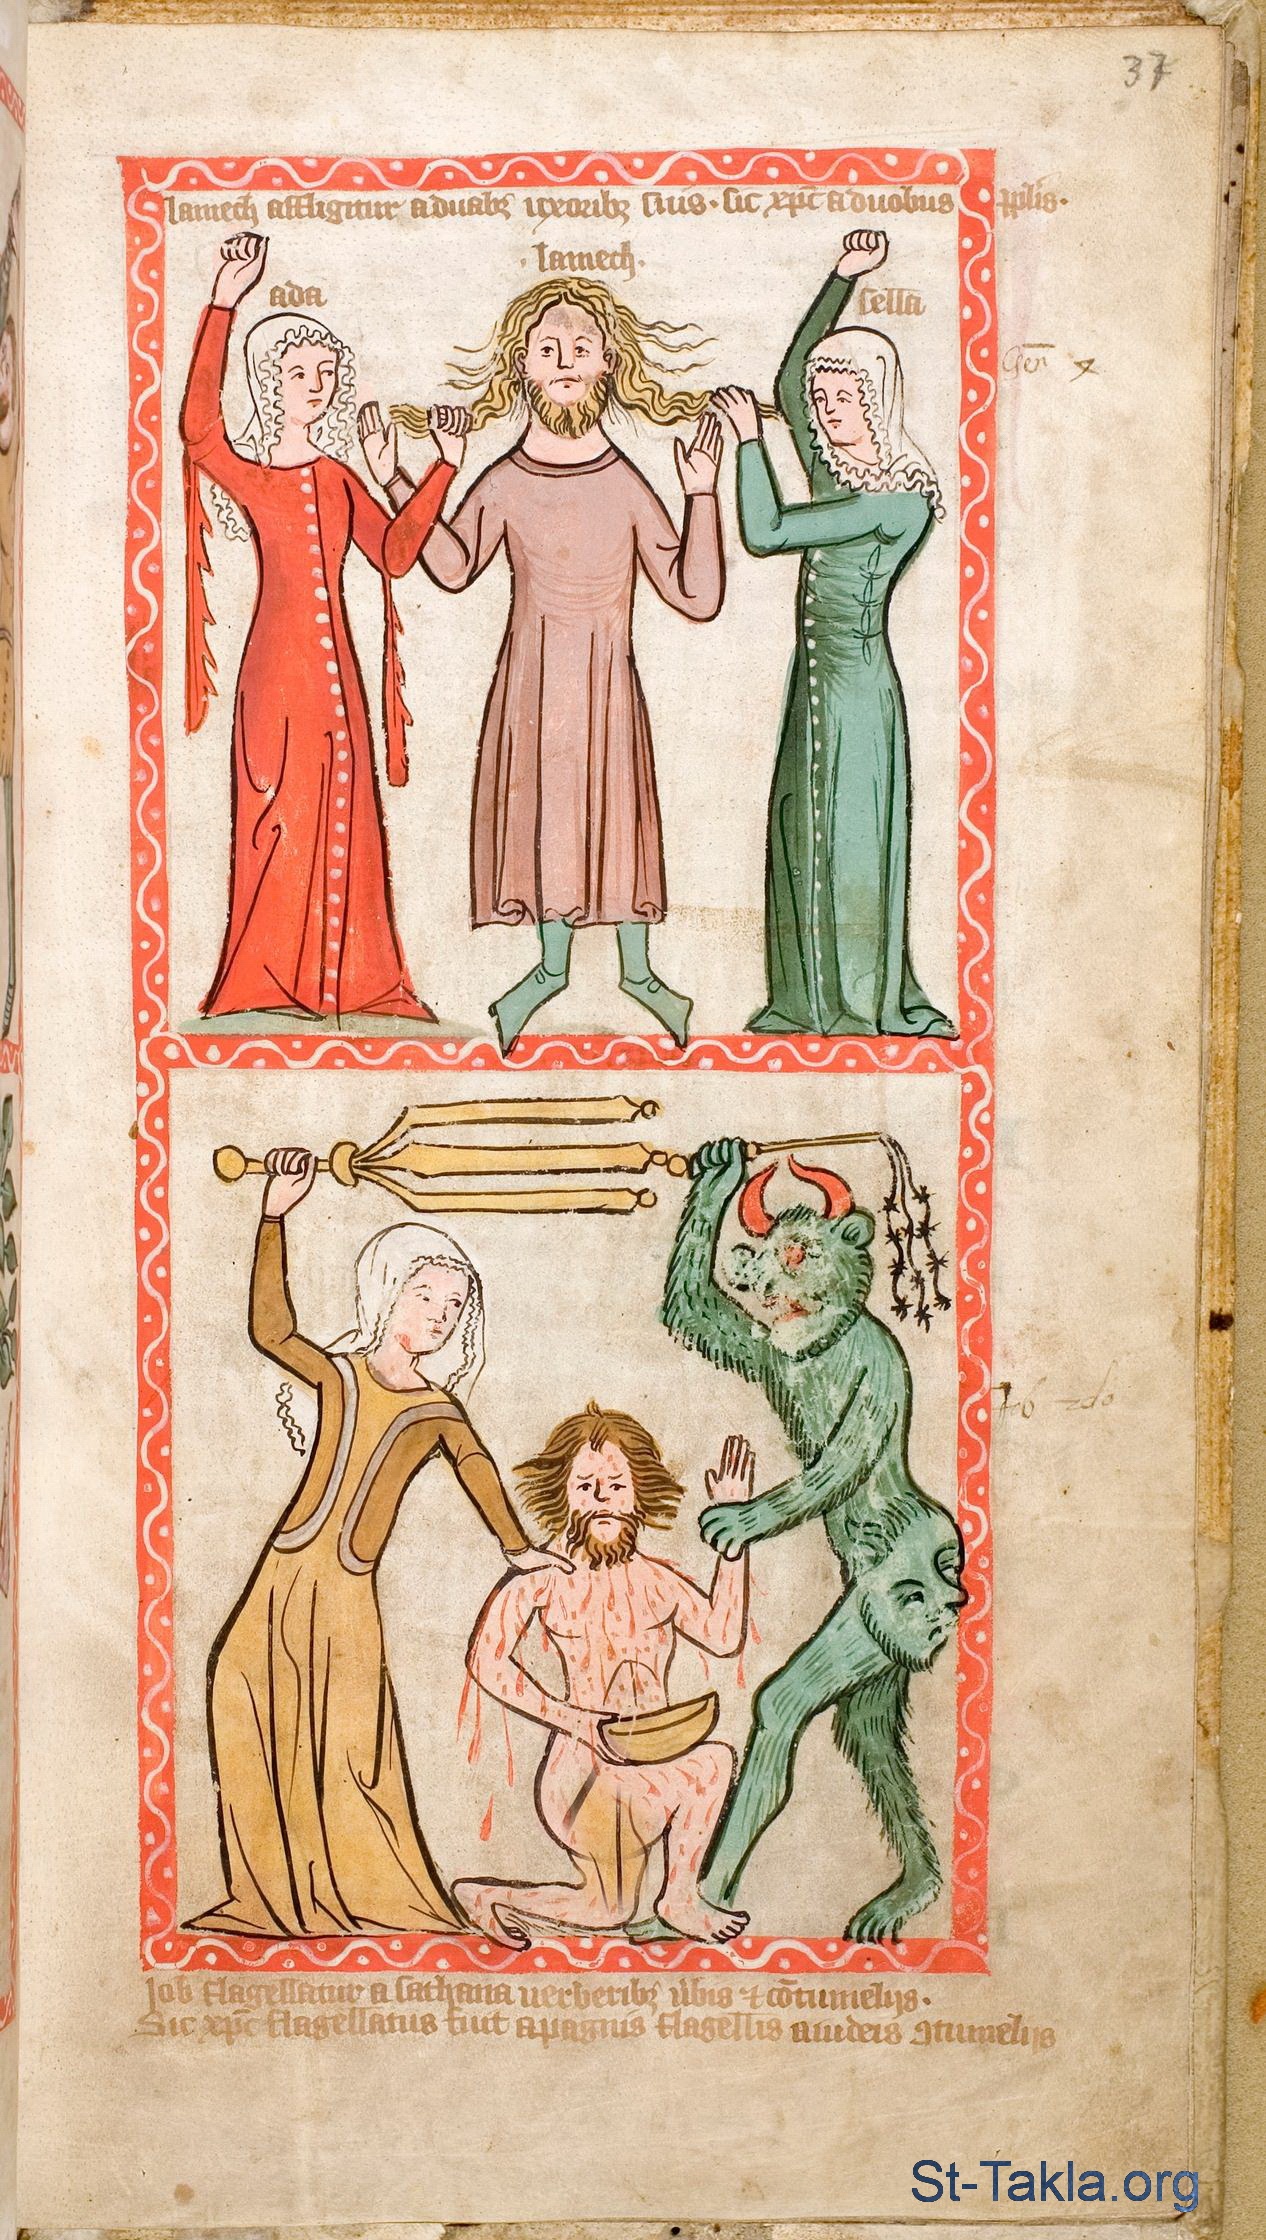 37
lamech affligitur a duabꝫ uxoribꝫ suis · sic xp̄c a duobus pp̄lis ·
· lamech ·
ada
sella
Gen 4
Job 2do
Job flagellatur a sathana uerberibꝫ ūbis ⁊ cōtumelijs ·
Sic xp̄c flagellatus fuit a paganis flagellis a iudeis ꝯtumelijs
St-Takla.org